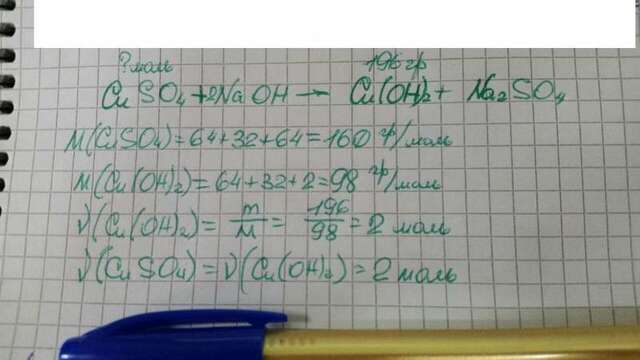 ?моль 196гр
CuSO₄+2NaOH → Cu(OH)₂+ Na₂SO₄
M(CuSO₄)=64+32+64=160 гр/моль
M(Cu(OH)₂)=64+32+2=98 гр/моль
ν(Cu(OH)₂)= m/M = 196/98 =2 моль
ν(CuSO₄)=ν(Cu(OH)₂)=2 моль